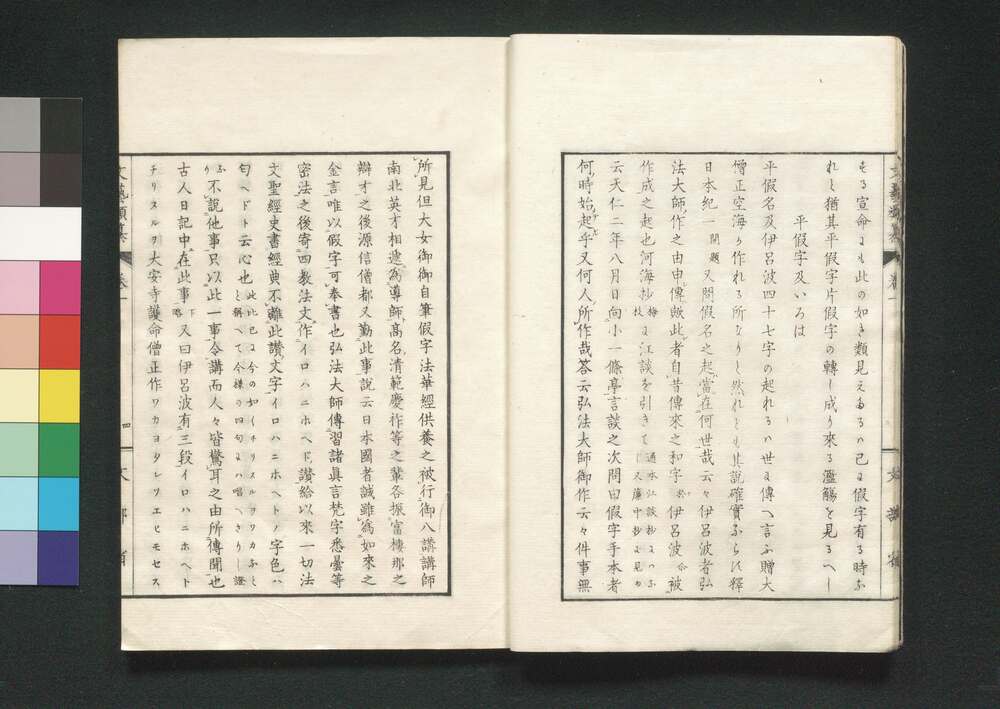 せる宣命にも此の如き類見えたるハ已に假字有る時ふ
れハ猶其平假字片假字の轉し成り來る濫觴を見るへし
平假字及いろは
平假名及伊呂波四十七字の起れるハ世に傳へ言ふ贈大
僧正空海の作れる所なりし然れとも其説確實ならに釋
日本紀一開題又問假名之起當在何世哉云々伊呂波者弘
法大師作之由申傳歟此者自昔傳來之和字 伊呂波 被
作成之起也河海抄梅枝に江談を引きて 通本江談抄にハふし又簾中抄に見ゆ
云天仁二年八月日向小一條亭言談之次問曰假字手本者
何時始起乎又何人所作哉答云弘法大師御作云々件事無
所見但大女御御自筆假字法華經供養之被行御八講講師
南北英才相遞為導師高名清範慶祚等之輩各振富樓那之
辯才之後源信僧都又勤此事說云日本國者誠雖為如來之
金言唯以假字可奉書也弘法大師傳習諸真言梵字悉曇等
密法之後寄四教法文作イロハニホヘド讚給以來一切法
文聖經史書經典不離此讚文字イロハニホヘトノ字色ハ
匂ヘド卜云心也 此比已に今の如イチリヌルヲワカふと と稱へて今様の四句にハ唱へさりし證
ふり 不說他事只以此一事令講而人々皆驚耳之由所傳聞也
古人日記中在此事下略又曰伊呂波有三段イロハニホヘト
チリヌルヲ大安寺護命僧正作ワカヨタレソエヒモセス
文藝類纂 卷一
四
文部省